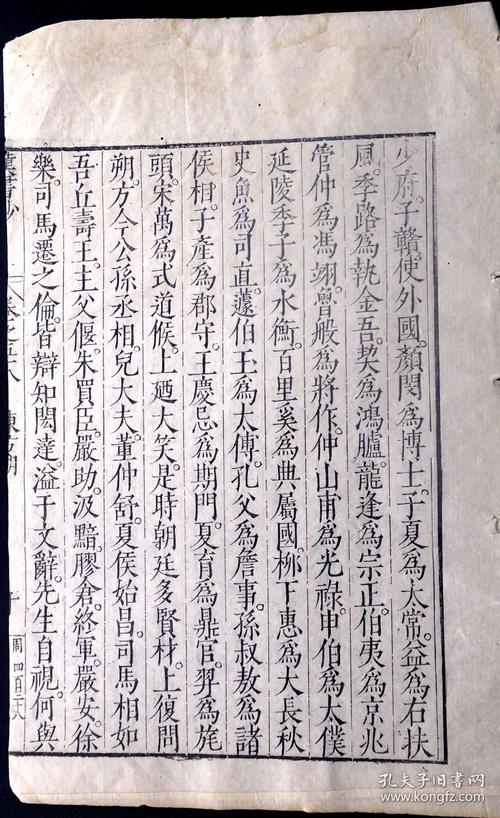 少府。子贛使外國。顏閔為博士。子夏為太常。益為右扶
風。季路為執金吾。契為鴻臚。龍逢為宗正。伯夷為京兆
管仲為馮翊。魯般為將作。仲山甫為光祿。申伯為太僕
延陵季子為水衡。百里奚為典屬國。柳下惠為大長秋
史魚為司直。蘧伯玉為太傅。孔父為詹事。孫叔敖為諸
侯相。子產為郡守。王慶忌為期門。夏育為鼎官。羿為旄
頭。宋萬為式道候。上廼大笑。是時朝廷多賢材。上復問
朔。方今公孫丞相。兒大夫。董仲舒。夏侯始昌。司馬相如
吾丘壽王。主父偃。朱買臣。嚴助。汲黯。膠倉。終軍。嚴安。徐
樂。司馬遷之倫。皆辯知閎達。溢于文辭。先生自視。何與
東方朔
孔夫子旧书网
www.kongfz.com